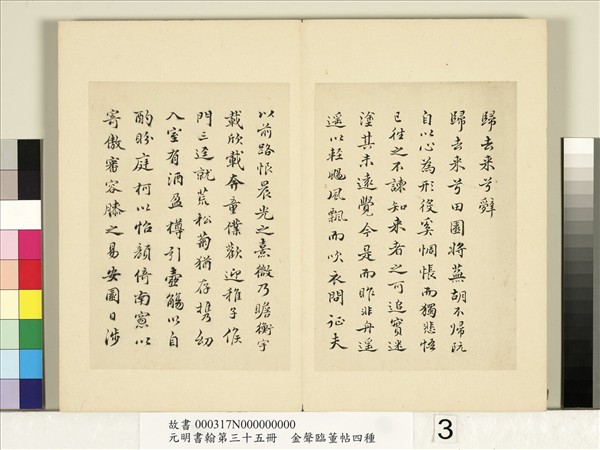 歸去来兮辭
歸去来兮田園将蕪胡不歸既
自以心為形役奚惆悵而獨悲悟
已往之不諫知来者之可追實迷
塗其未遠覺今是而昨非舟遥
遥以輕颺風飄而吹衣問征夫
以前路恨晨光之熹微乃瞻衡宇
載欣載奔童僕歡迎稚子候
門三逕就荒松菊猶存携幼
入室有酒盈樽引壺觴以自
酌眄庭柯以怡顏倚南窓以
寄傲審容膝之易安園日涉
故書 000317N000000000
元明書翰第三十五冊 金聲臨董帖四種
3